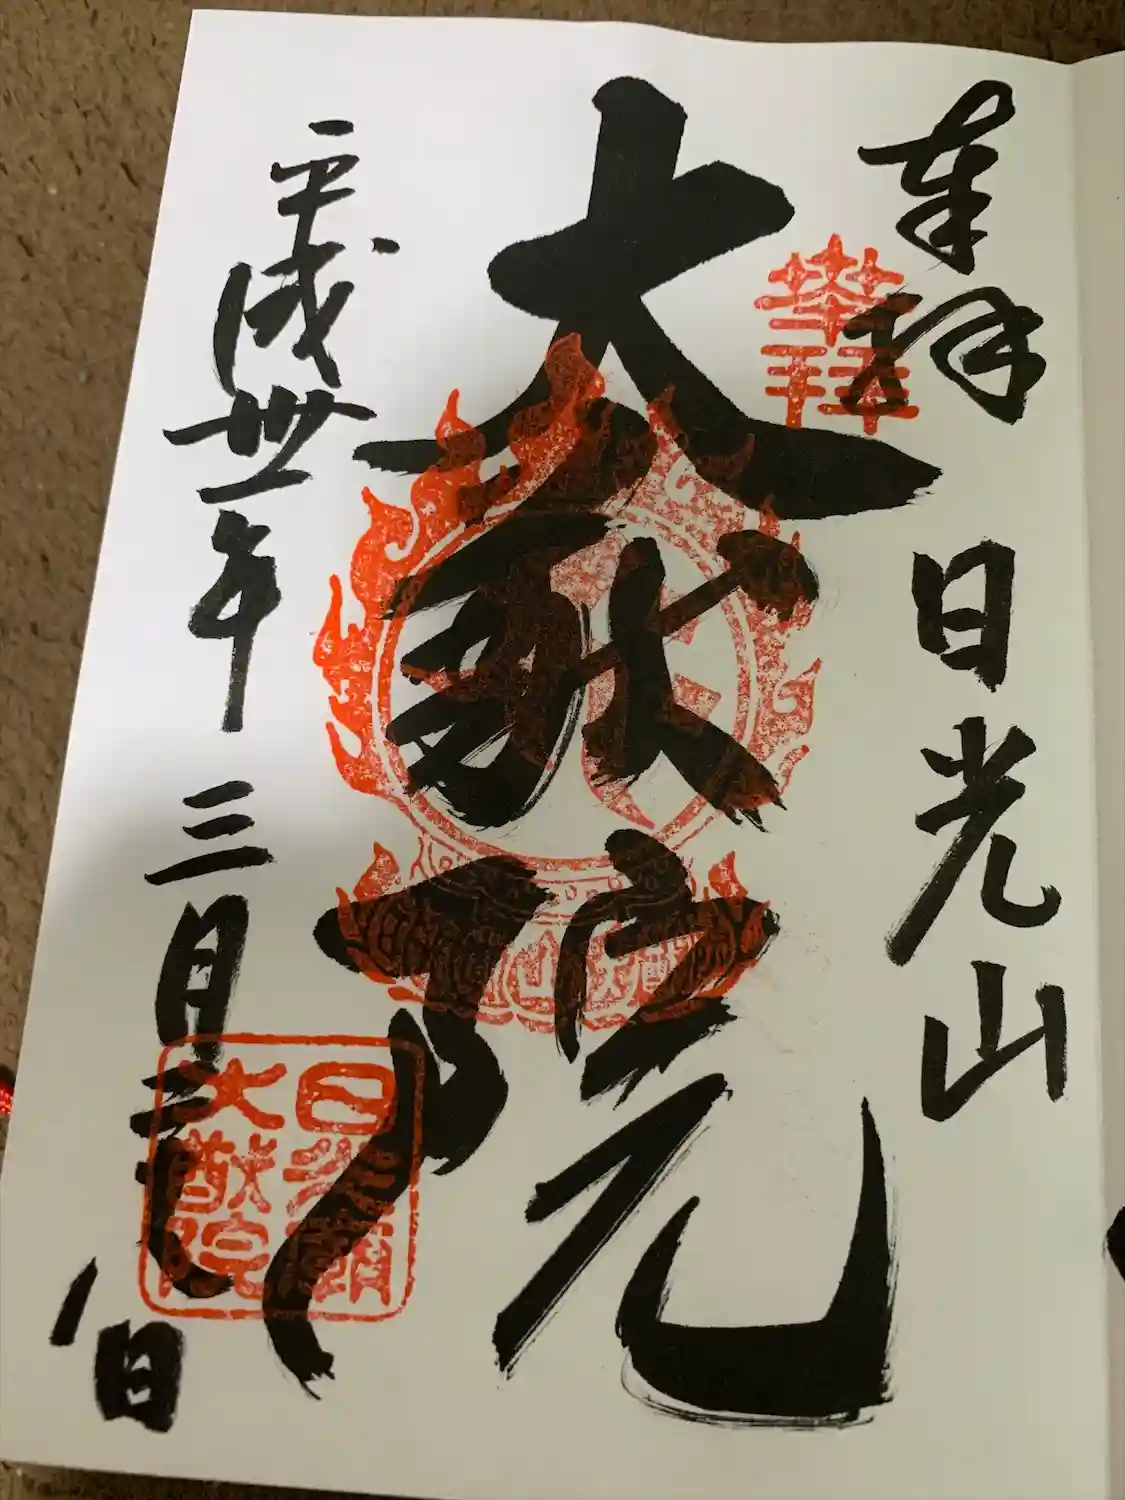 奉拝
日光山
大猷院
平成丗一年
三月
日
日光廟
大猷院